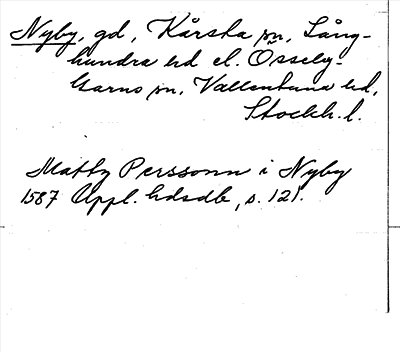 Nyby, gd, Kårsta sn, Lång-
hundra hd el. Össeby-
Garns sn, Vallentuna hd,
Stockh. l.
Matts Perssonn i Nyby
1587 Uppl. hdsdb, s. 121.